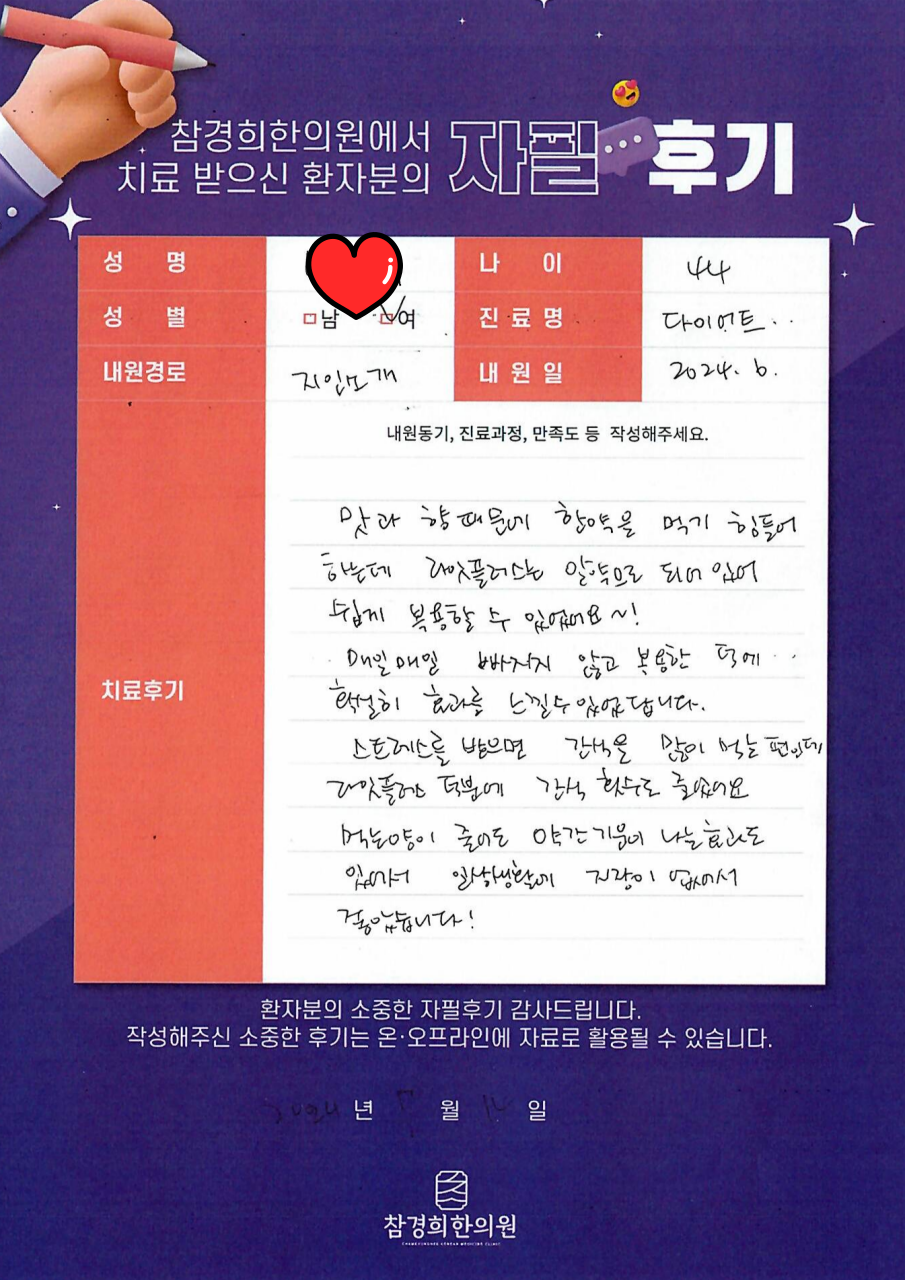 참경희한의원에서
치료 받으신 환자분의 자필 후기
성 명
나 이 44
성 별 남 여
진 료 명 다이어트..
내원경로 지인소개
내 원 일 2024. 6.
내원동기, 진료과정, 만족도 등 작성해주세요.
치료후기
맛과 향 때문에 한약을 먹기 힘들어
하는데 라잇플러스는 알약으로 되어 있어
쉽게 복용할 수 있었어요~!
매일매일 빠지지 않고 복용한 덕에..
확실히 효과를 느낄수있었답니다.
스트레스를 받으면 간식을 많이 먹는편인데
라잇플러스 덕분에 간식 횟수도 줄었어요
먹는양이 줄어도 약간 기운이 나는효과도
있어서 일상생활에 지장이 없어서
좋았습니다!
환자분의 소중한 자필후기 감사드립니다.
작성해주신 소중한 후기는 온·오프라인에 자료로 활용될 수 있습니다.
2024 년 7 월 일
참경희한의원